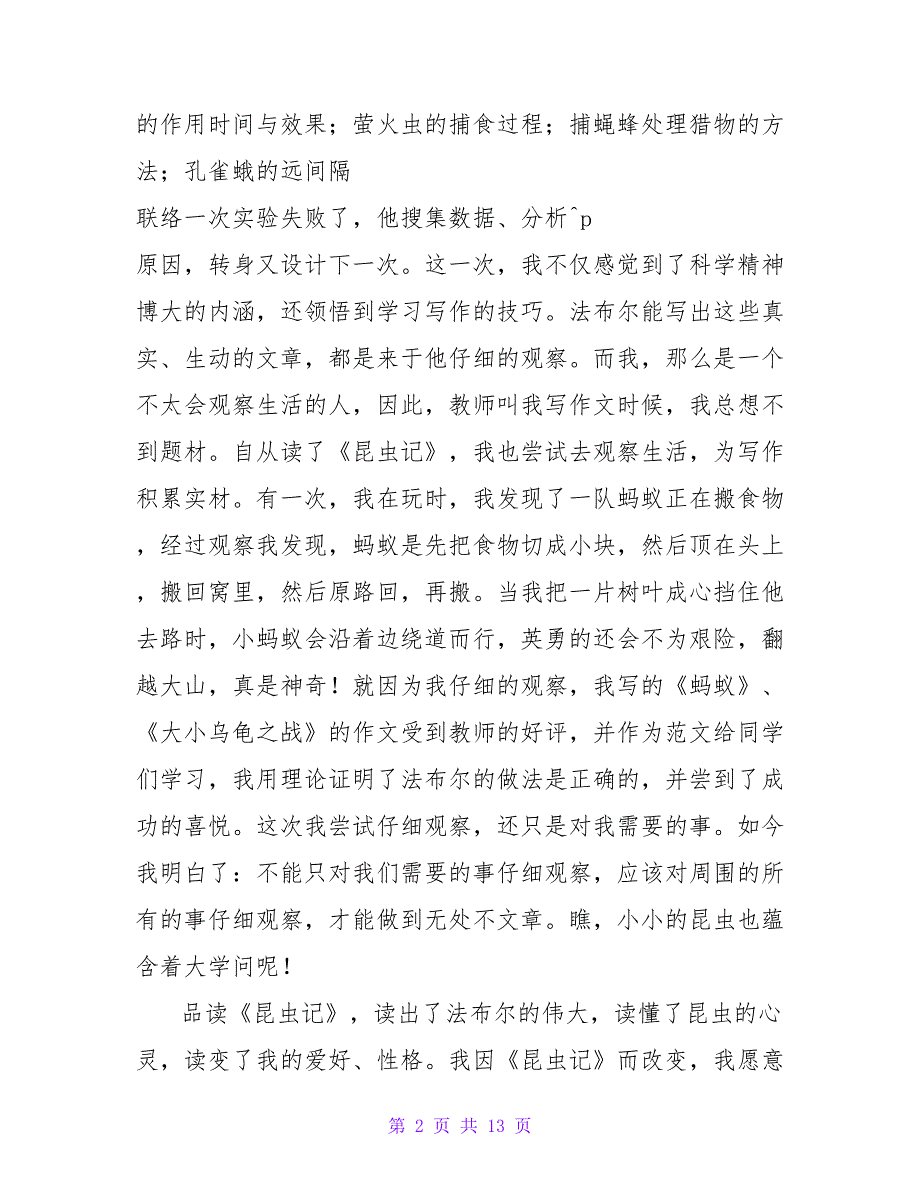 的作用时间与效果；萤火虫的捕食过程；捕蝇蜂处理猎物的方
法；孔雀蛾的远间隔
联络一次实验失败了，他搜集数据、分析^p
原因，转身又设计下一次。这一次，我不仅感觉到了科学精神
博大的内涵，还领悟到学习写作的技巧。法布尔能写出这些真
实、生动的文章，都是来于他仔细的观察。而我，那么是一个
不太会观察生活的人，因此，教师叫我写作文时候，我总想不
到题材。自从读了《昆虫记》，我也尝试去观察生活，为写作
积累实材。有一次，我在玩时，我发现了一队蚂蚁正在搬食物
，经过观察我发现，蚂蚁是先把食物切成小块，然后顶在头上
，搬回窝里，然后原路回，再搬。当我把一片树叶成心挡住他
去路时，小蚂蚁会沿着边绕道而行，英勇的还会不为艰险，翻
越大山，真是神奇！就因为我仔细的观察，我写的《蚂蚁》、
《大小乌龟之战》的作文受到教师的好评，并作为范文给同学
们学习，我用理论证明了法布尔的做法是正确的，并尝到了成
功的喜悦。这次我尝试仔细观察，还只是对我需要的事。如今
我明白了：不能只对我们需要的事仔细观察，应该对周围的所
有的事仔细观察，才能做到无处不文章。瞧，小小的昆虫也蕴
含着大学问呢！
品读《昆虫记》，读出了法布尔的伟大，读懂了昆虫的心
灵，读变了我的爱好、性格。我因《昆虫记》而改变，我愿意
第 2 页 共 13 页